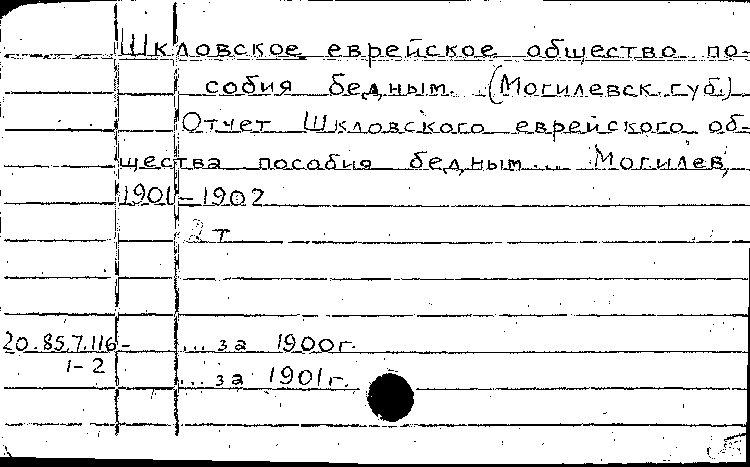 Шкловское еврейское общество по-
собия бедным. (Могилевск. губ.)
Отчет Шкловского еврейского об-
щества пособия бедным... Могилев,
1901-1902
2 т
20.85.7.116- ... за 1900г.
1-2
... за 1901г.